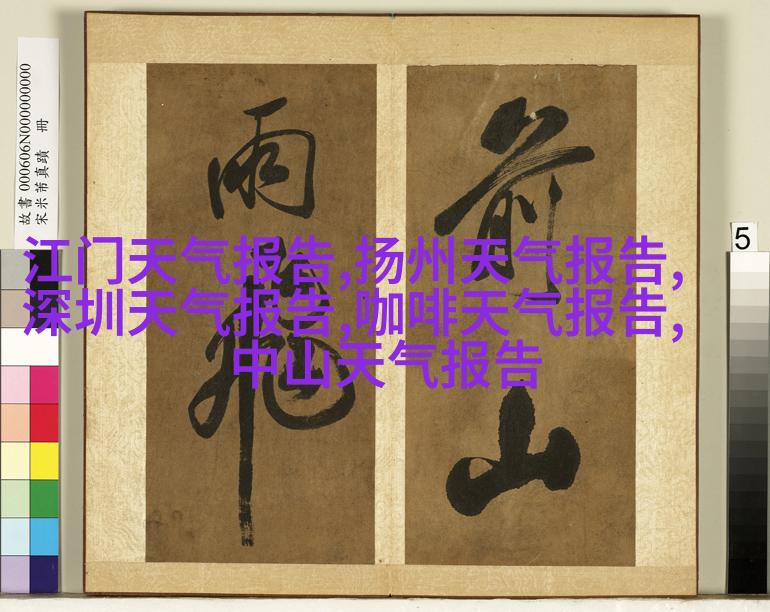 故書 000606N000000000
宋米芾真蹟 冊
前山
雨飛
江门天气报告,扬州天气报告,
深圳天气报告,咖啡天气报告,
中山天气报告
5